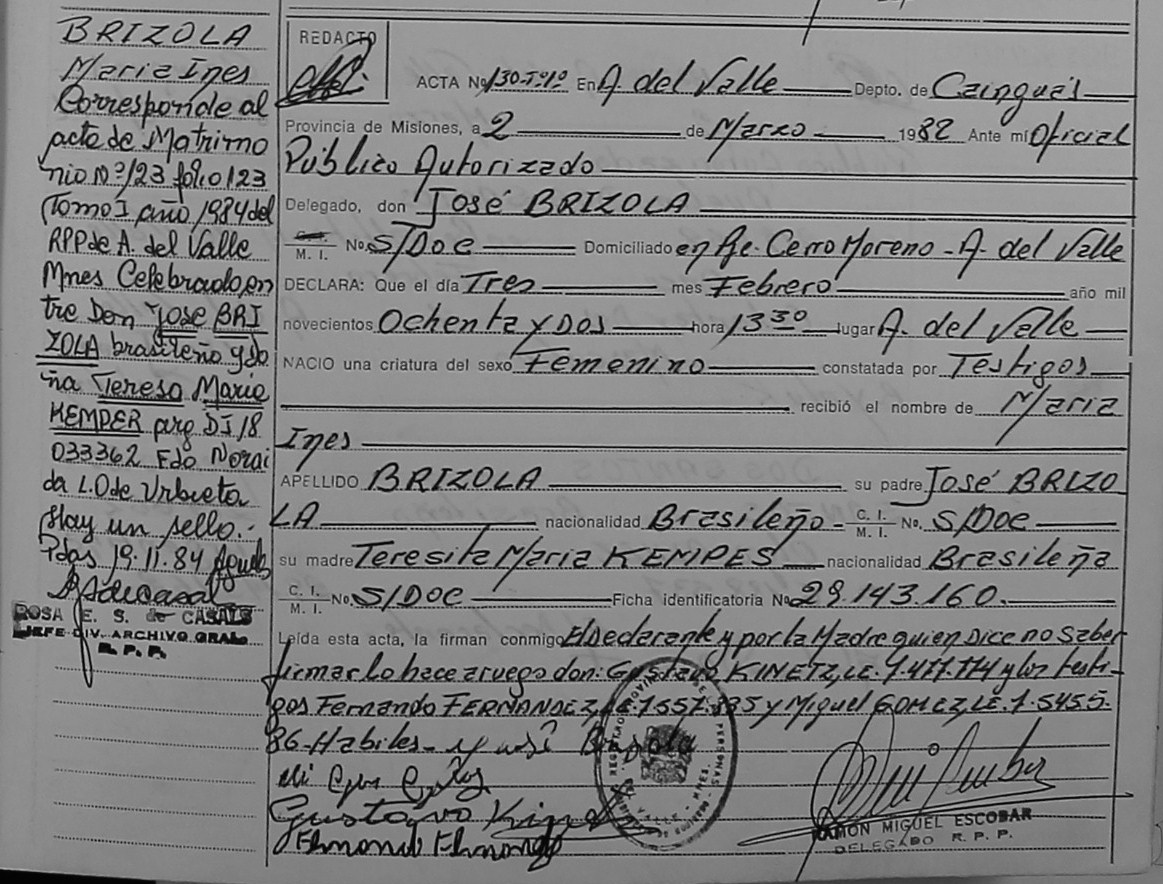 BRIZOLA
Maria Ines
Corresponde al
acta de Matrimo
nio Nº 123 folio 123
Tomo I año 1984 del
RPP de A. del Valle
Mnes Celebrado, en
tre Don Jose BRI
ZOLA brasileño y do
ña Teresa Maria
KEMPER parg DI 18
033362 Fdo Norai
da L.O de Urbieta
Hay un sello.
Pdas 19.11.84
ROSA E. S. de CASALS
JEFE DIV. ARCHIVO GRAL.
R. P. P.
REDACTO
ACTA Nº 130-Tº1º En A. del Valle Depto. de Cainguás
Provincia de Misiones, a 2 de Marzo 1982 Ante mí Oficial
Público Autorizado
Delegado, don José BRIZOLA
C. I.
M. I. No. S/Doc Domiciliado en Pje. Cerro Moreno - A. del Valle
DECLARA: Que el día Tres mes Febrero año mil
novecientos Ochenta y Dos hora 13 30 lugar A. del Valle
NACIO una criatura del sexo Femenino constatada por Testigos
recibió el nombre de Maria
Ines
APELLIDO BRIZOLA su padre José BRIZO
LA nacionalidad Brasileño - C. I. M. I. No. S/Doc
su madre Teresita Maria KEMPES nacionalidad Brasileña
C. I. M. I. No. S/Doc Ficha identificatoria No 29.143.160.
Leída esta acta, la firman conmigo El Declarante y por la Madre quien Dice no Saber
firmar Lo hace a ruego don: Gustavo KINETZ, LE. 7.477.774 y los testi-
gos Fernando FERNANDEZ, LE. 7.557.335 y Miguel GOMEZ, LE. 7.545.5
86-Habiles-
Gustavo
RAMON MIGUEL ESCOBAR
DELEGADO R. P. P.